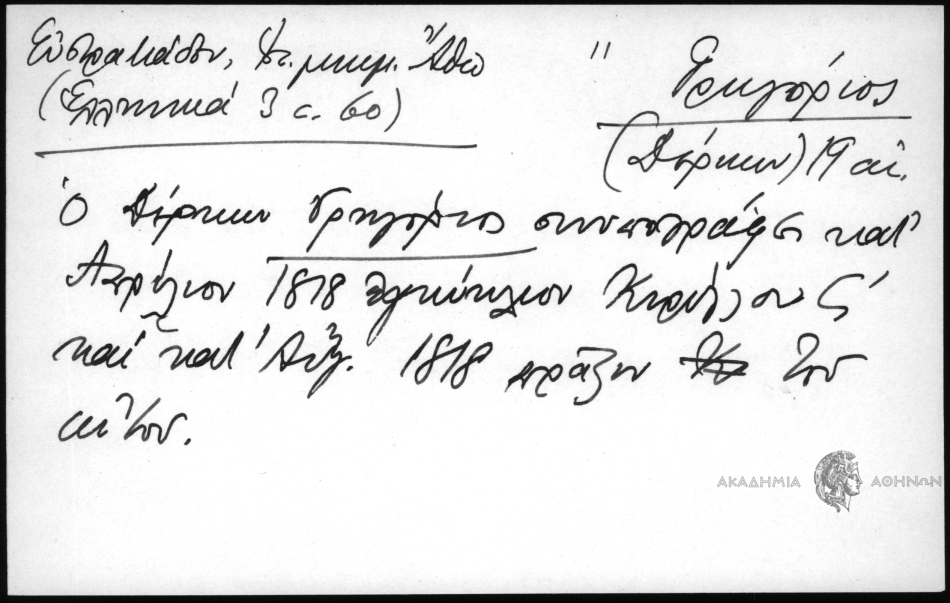 Εὐστρατιάδου, Ἱστ. μνημ. Ἄθω
(Ἑλληνικά 3 σ. 60)
" Γρηγόριος
(Δέρκων) 19 αἰ.
Ὁ Δέρκων Γρηγόριος συνυπογράφει κατ'
Ἀπρίλιον 1818 ἐγκύκλιον Κυρίλλου Ϛ'
καί κατ' Αὔγ. 1818 πρᾶξιν τοῦ
αὐτοῦ.
ΑΚΑΔΗΜΙΑ ΑΘΗΝΩΝ